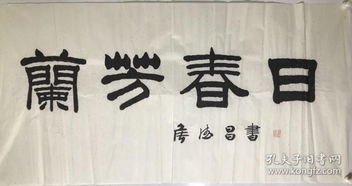 蘭芳春日
侯德昌書
孔夫子旧书网
www.kongfz.com